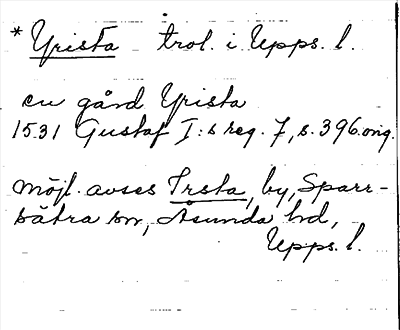 * Yrista trol. i Upps. l.
en gård Yrista
1531 Gustaf I:s reg. 7, s. 396 orig.
möjl. avses Irsta, by, Sparr-
sätra sn, Åsunda hd,
Upps. l.